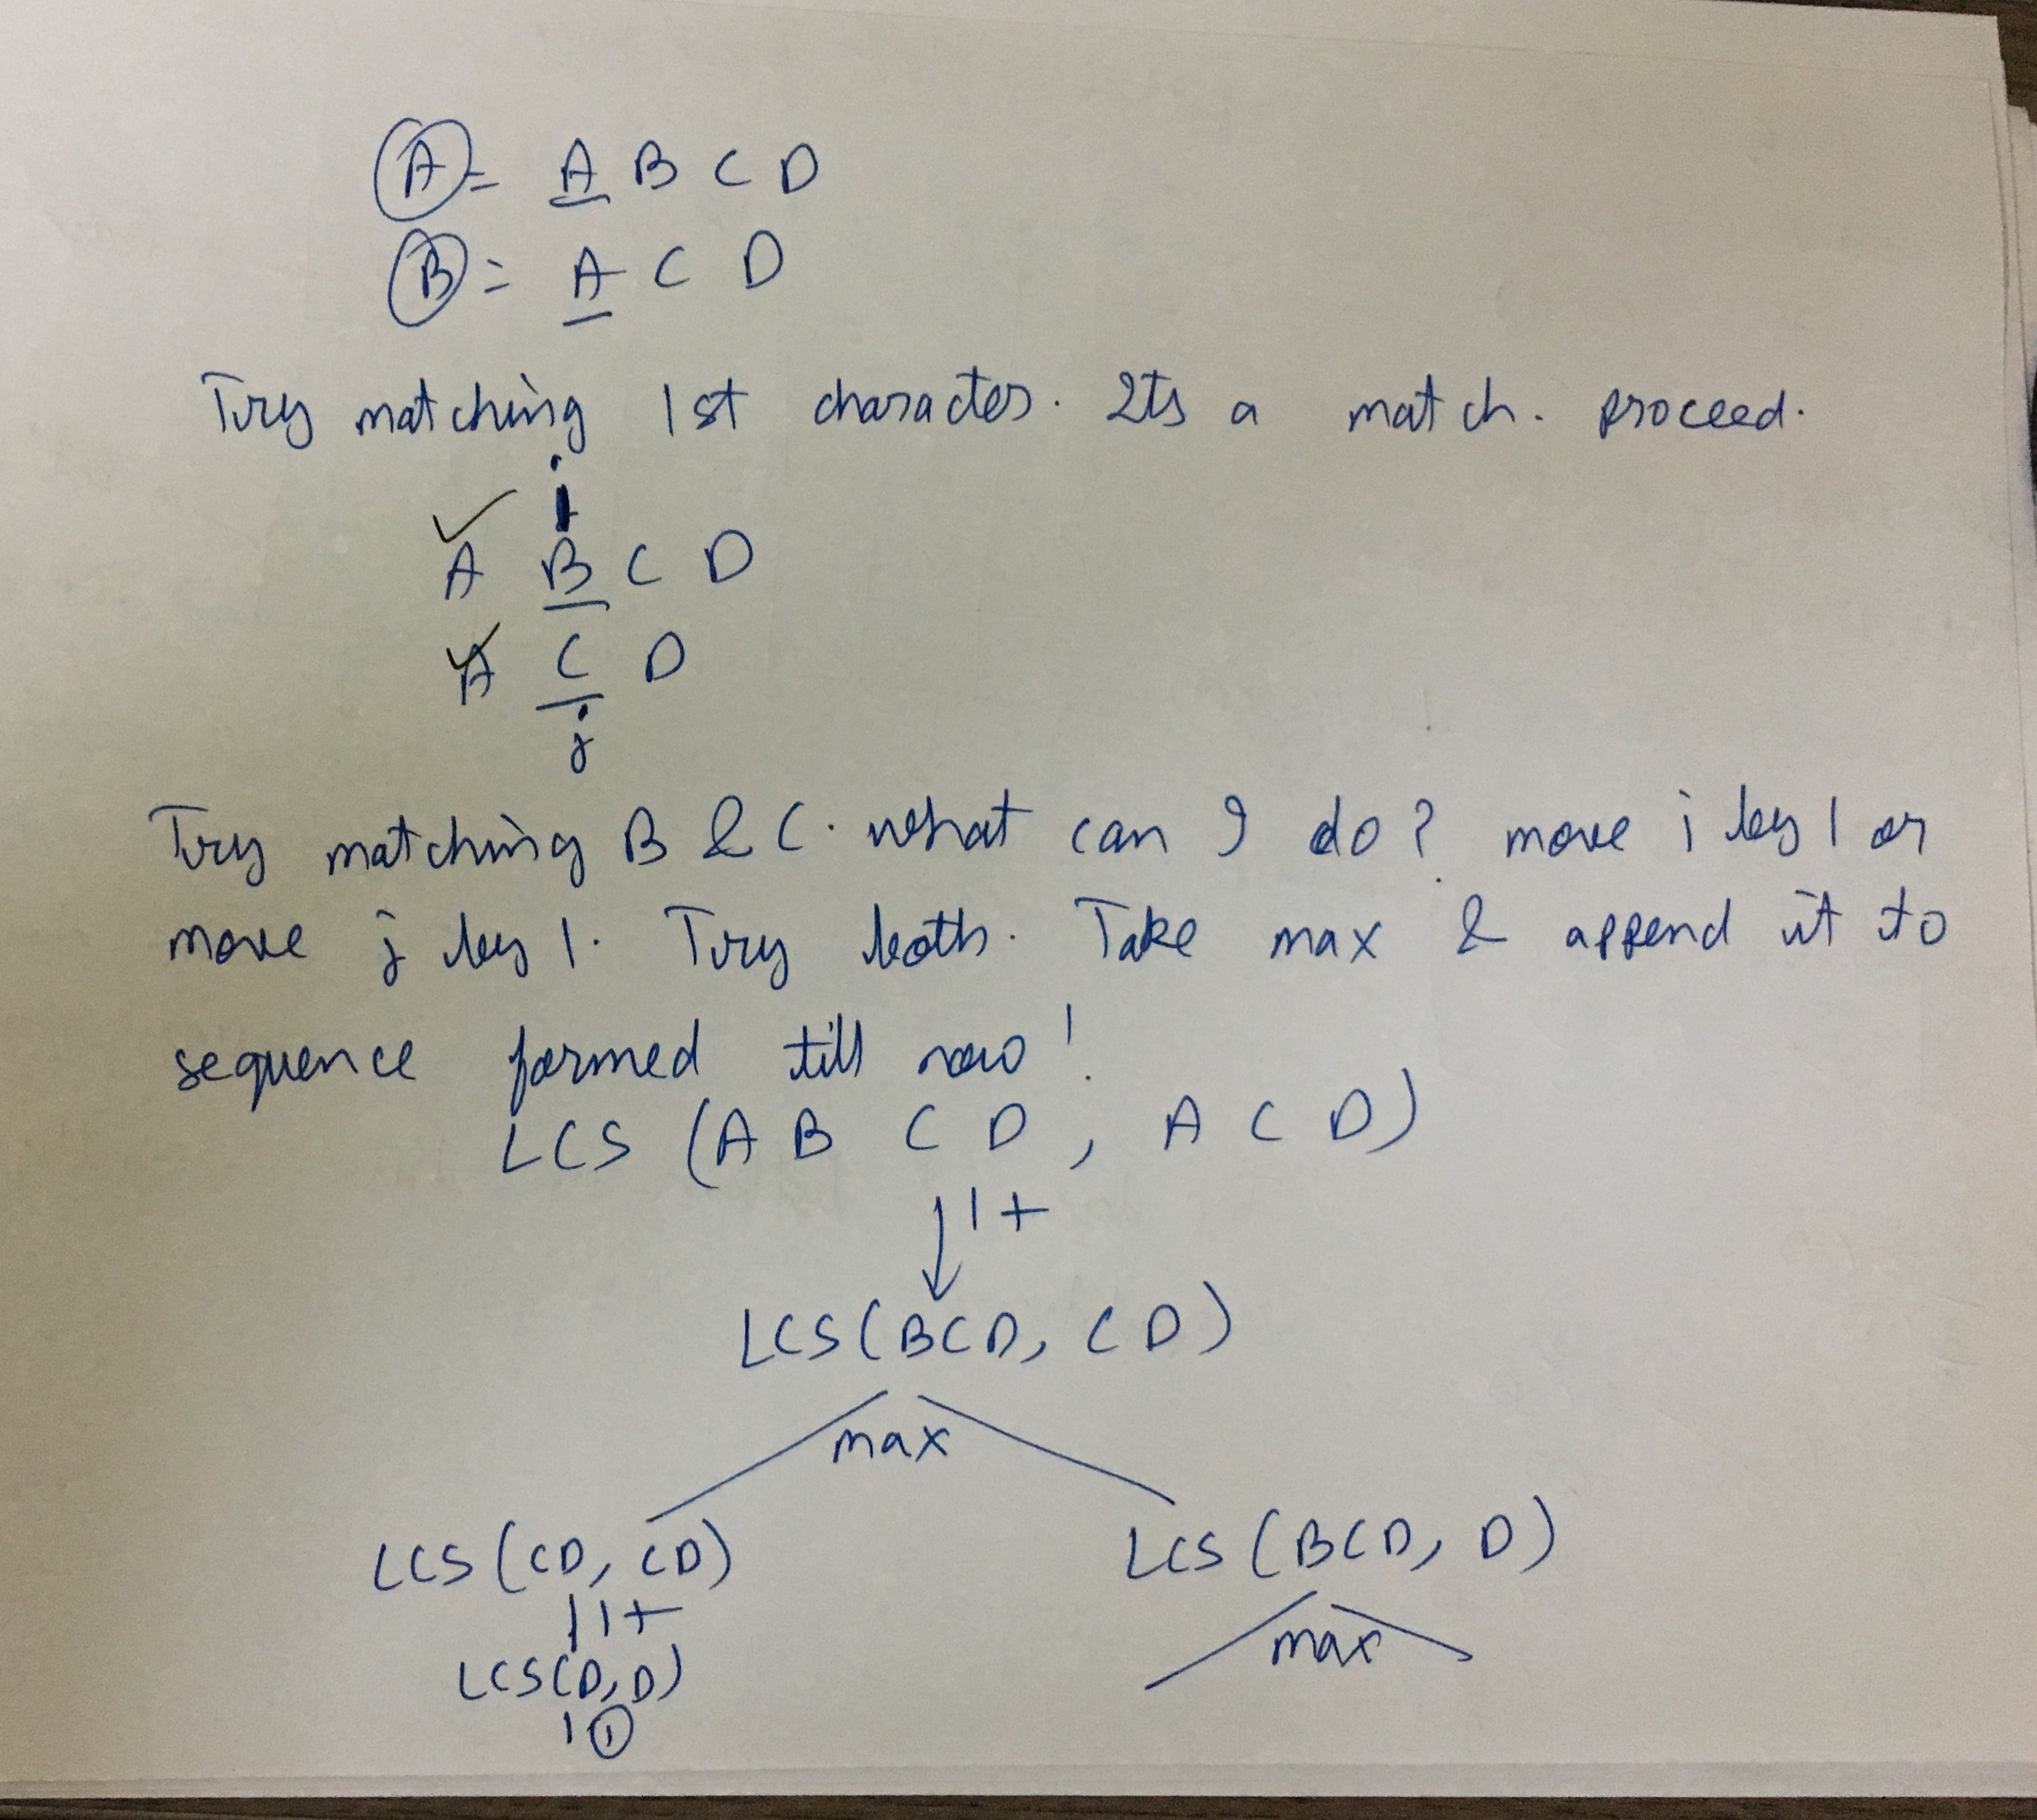 A = A B C D
B = A C D
Try matching 1st character. Its a match. proceed.
i
A B C D
A C D
j
Try matching B & C. what can I do? move i by 1 or
move j by 1. Try both. Take max & append it to
sequence formed till now!
LCS (A B C D, A C D)
1+
LCS(BCD, CD)
max
LCS (CD, CD) LCS (BCD, D)
1+ max
LCS(D,D)
1